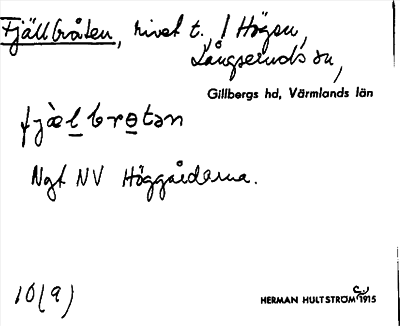 Fjällbråten, rivet t., 1 Högsn,
Långseruds sn,
Gillbergs hd, Värmlands län
fjæ̀lbrɵtən
Ngt NV Höggårdarna.
10(9)
HERMAN HULTSTRÖM C:a 1915